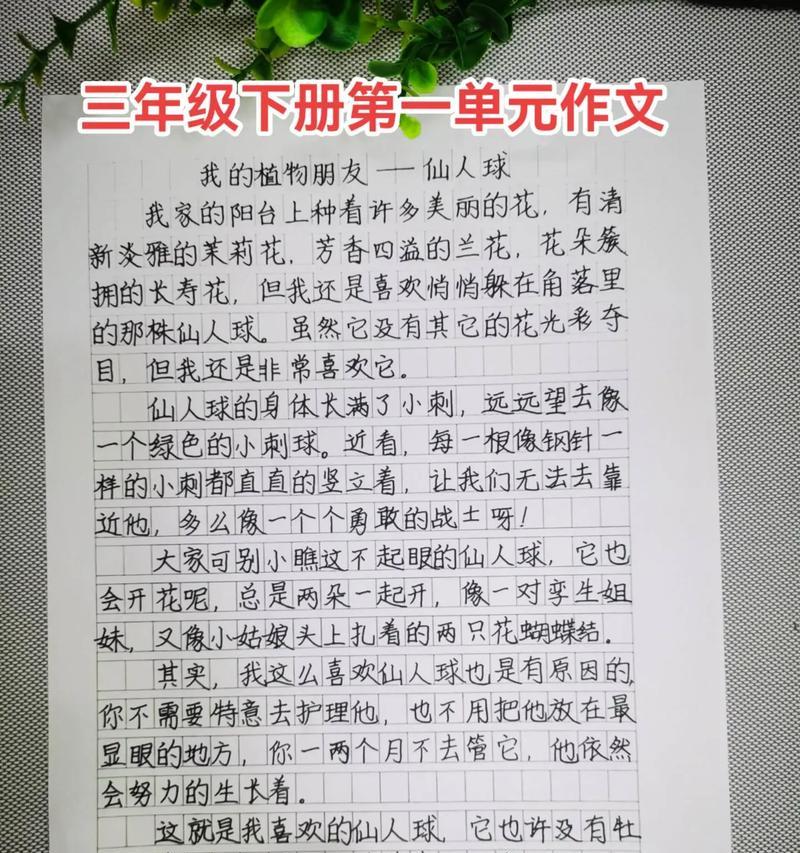 三年级下册第一单元作文
我的植物朋友——仙人球
我家的阳台上种着许多美丽的花，有清
新淡雅的茉莉花，芳香四溢的兰花，花朵簇
拥的长寿花，但我还是喜欢悄悄躲在角落里
的那株仙人球。虽然它没有其它的花光彩夺
目，但我还是非常喜欢它。
仙人球的身体长满了小刺，远远望去像
一个绿色的小刺球。近看，每一根像钢针一
样的小刺都直直的竖立着，让我们无法去靠
近他，多么像一个个勇敢的战士呀！
大家可别小瞧这不起眼的仙人球，它也
会开花呢，总是两朵一起开，像一对孪生姐
妹，又像小姑娘头上扎着的两只花蝴蝶结。
其实，我这么喜欢仙人球也是有原因的，
你不需要特意去护理他，也不用把他放在最
显眼的地方，你一两个月不去管它，他依然
会努力的生长着。
这就是我喜欢的仙人球，它也许没有牡